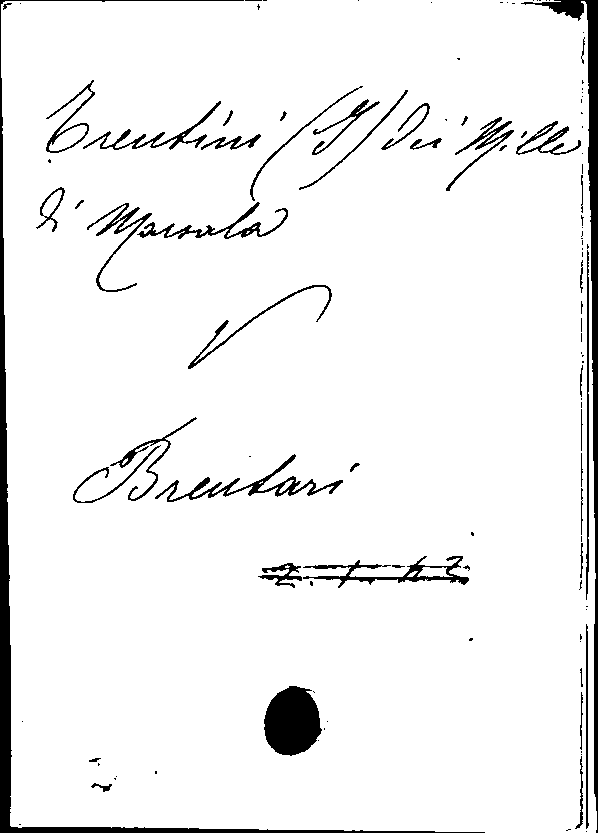 Trentini (I) dei Mille
di Marsala
V
Brentari